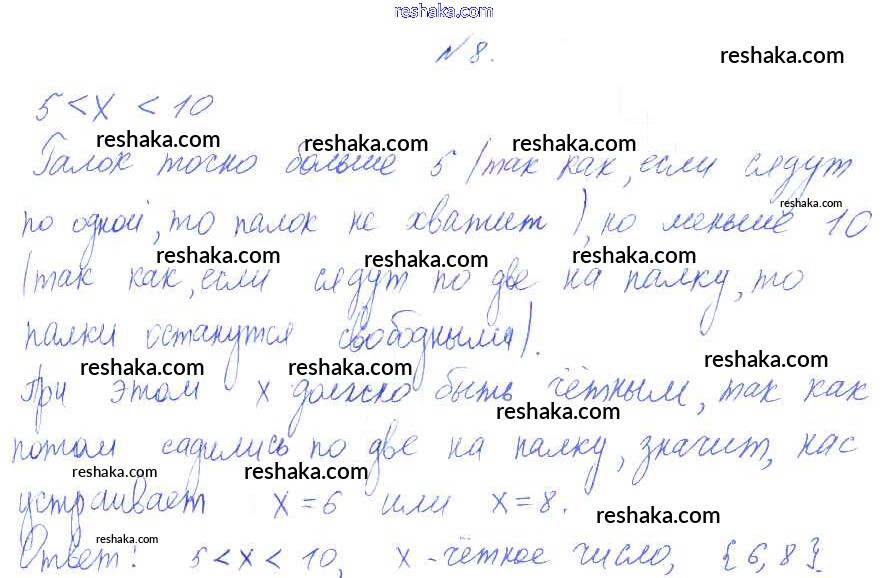 reshaka.com
№ 8. reshaka.com
5 < x < 10
reshaka.com reshaka.com reshaka.com
Галок точно больше 5 (так как, если сядут
reshaka.com
по одной, то палок не хватит), но меньше 10
reshaka.com reshaka.com reshaka.com
(так как, если сядут по две на палку, то
палки останутся свободными).
reshaka.com reshaka.com reshaka.com
При этом x должно быть чётным, так как
reshaka.com
потом садились по две на палку, значит, нас
reshaka.com reshaka.com
устраивает x = 6 или x = 8.
reshaka.com reshaka.com
Ответ: 5 < x < 10, x - чётное число, {6, 8}.